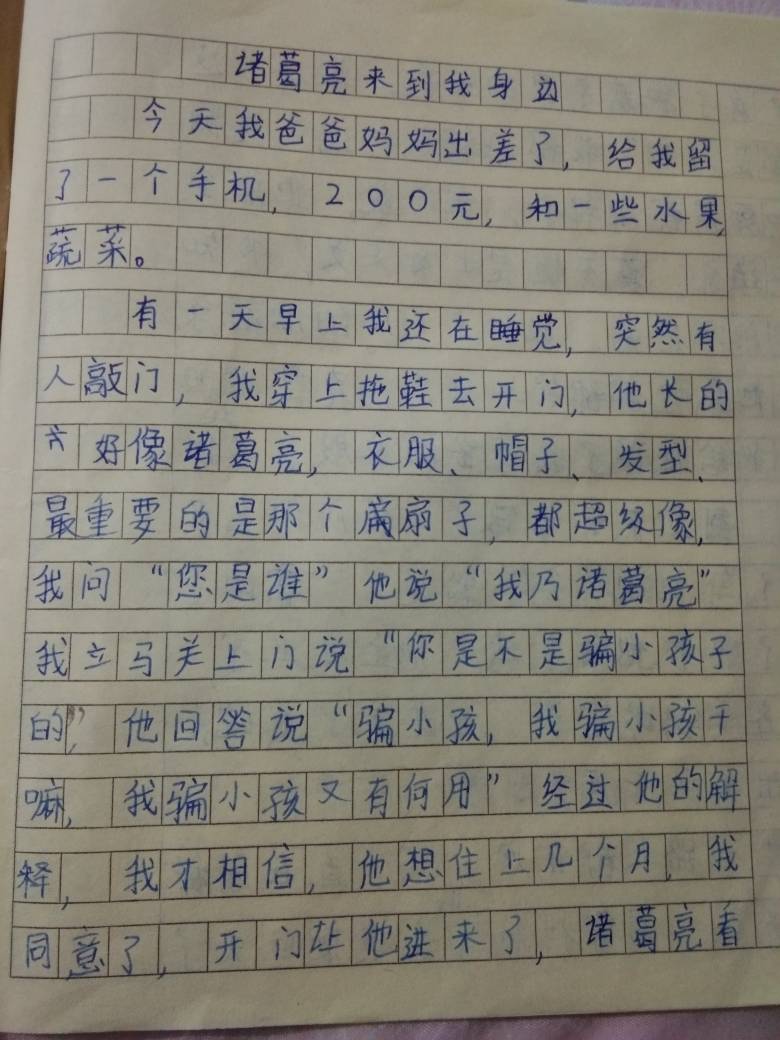 诸葛亮来到我身边
今天我爸爸妈妈出差了，给我留
了一个手机，200元，和一些水果，
蔬菜。
有一天早上我还在睡觉，突然有
人敲门，我穿上拖鞋去开门，他长的
好像诸葛亮，衣服、帽子、发型、
最重要的是那个扇子，都超级像，
我问“您是谁”他说“我乃诸葛亮”
我立马关上门说“你是不是骗小孩子
的”，他回答说“骗小孩，我骗小孩干
嘛，我骗小孩又有何用”经过他的解
释，我才相信，他想住上几个月，我
同意了，开门让他进来了，诸葛亮看